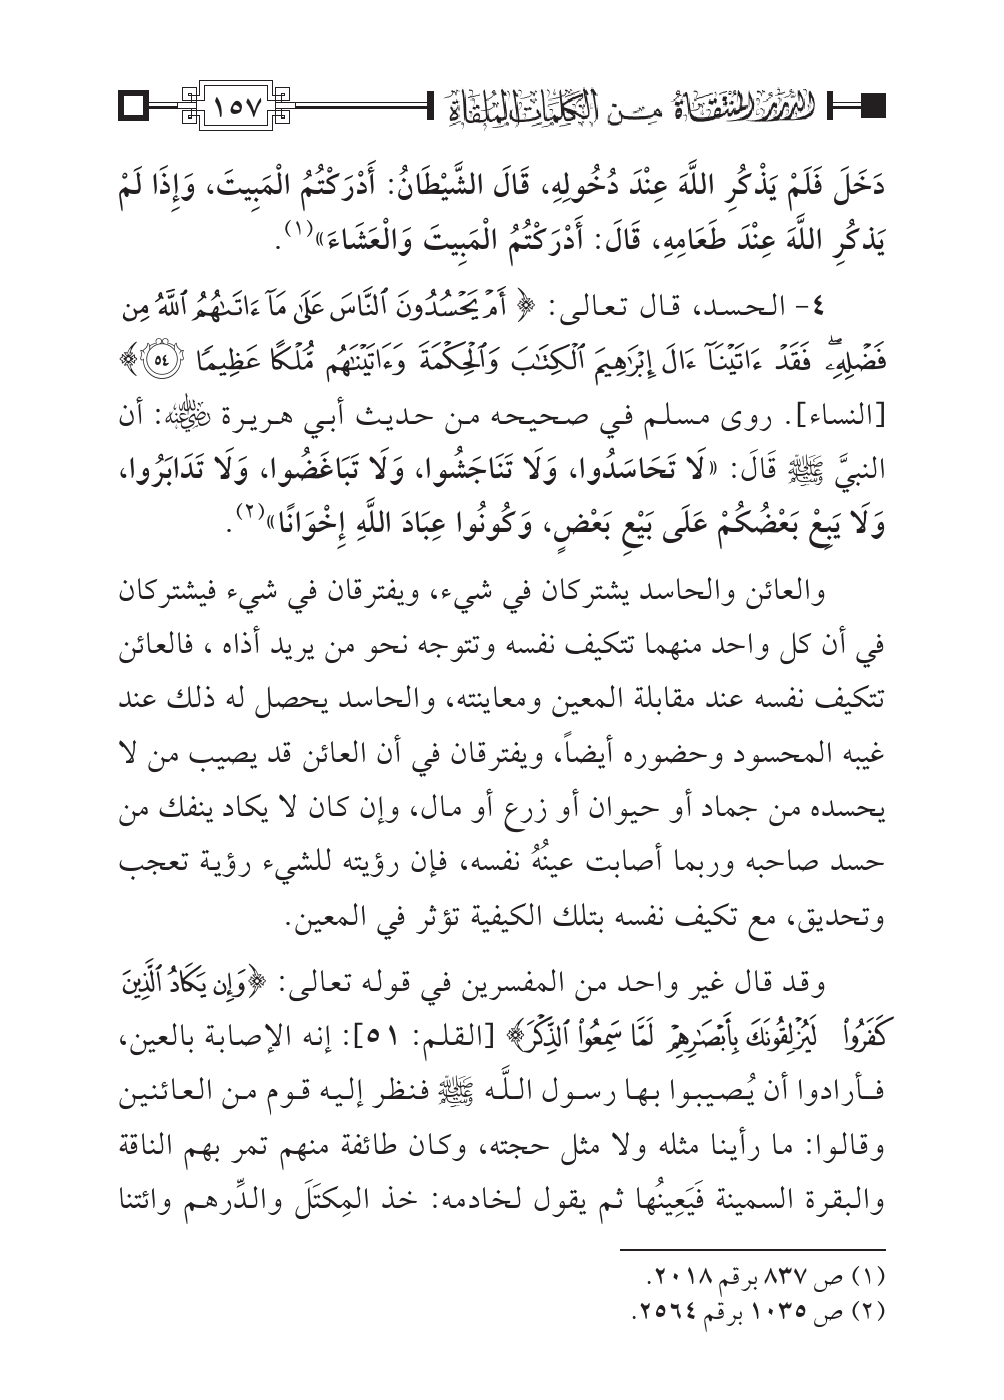 الدرر المنتقاة من الكلمات الملقاة ١٥٧
دَخَلَ فَلَمْ يَذْكُرِ اللَّهَ عِنْدَ دُخُولِهِ، قَالَ الشَّيْطَانُ: أَدْرَكْتُمُ الْمَبِيتَ، وَإِذَا لَمْ
يَذكُرِ اللَّهَ عِنْدَ طَعَامِهِ، قَالَ: أَدْرَكْتُمُ الْمَبِيتَ وَالْعَشَاءَ»(١).
٤- الحسد، قال تعالى: ﴿ أَمْ يَحْسُدُونَ ٱلنَّاسَ عَلَىٰ مَآ ءَاتَىٰهُمُ ٱللَّهُ مِن
فَضْلِهِۦۖ فَقَدْ ءَاتَيْنَآ ءَالَ إِبْرَٰهِيمَ ٱلْكِتَٰبَ وَٱلْحِكْمَةَ وَءَاتَيْنَٰهُم مُّلْكًا عَظِيمًا ٥٤﴾
[النساء]. روى مسلم في صحيحه من حديث أبي هريرة رضي الله عنه: أن
النبيَّ ﷺ قَالَ: «لَا تَحَاسَدُوا، وَلَا تَنَاجَشُوا، وَلَا تَبَاغَضُوا، وَلَا تَدَابَرُوا،
وَلَا يَبِعْ بَعْضُكُمْ عَلَى بَيْعِ بَعْضٍ، وَكُونُوا عِبَادَ اللَّهِ إِخْوَانًا»(٢).
والعائن والحاسد يشتركان في شيء، ويفترقان في شيء فيشتركان
في أن كل واحد منهما تتكيف نفسه وتتوجه نحو من يريد أذاه ، فالعائن
تتكيف نفسه عند مقابلة المعين ومعاينته، والحاسد يحصل له ذلك عند
غيبه المحسود وحضوره أيضاً، ويفترقان في أن العائن قد يصيب من لا
يحسده من جماد أو حيوان أو زرع أو مال، وإن كان لا يكاد ينفك من
حسد صاحبه وربما أصابت عينُهُ نفسه، فإن رؤيته للشيء رؤية تعجب
وتحديق، مع تكيف نفسه بتلك الكيفية تؤثر في المعين.
وقد قال غير واحد من المفسرين في قوله تعالى: ﴿وَإِن يَكَادُ ٱلَّذِينَ
كَفَرُوا۟ لَيُزْلِقُونَكَ بِأَبْصَٰرِهِمْ لَمَّا سَمِعُوا۟ ٱلذِّكْرَ﴾ [القلم: ٥١]: إنه الإصابة بالعين،
فأرادوا أن يُصيبوا بها رسول اللَّه ﷺ فنظر إليه قوم من العائنين
وقالوا: ما رأينا مثله ولا مثل حجته، وكان طائفة منهم تمر بهم الناقة
والبقرة السمينة فَيَعِينُها ثم يقول لخادمه: خذ المِكتَلَ والدِّرهم وائتنا
(١) ص ٨٣٧ برقم ٢٠١٨.
(٢) ص ١٠٣٥ برقم ٢٥٦٤.